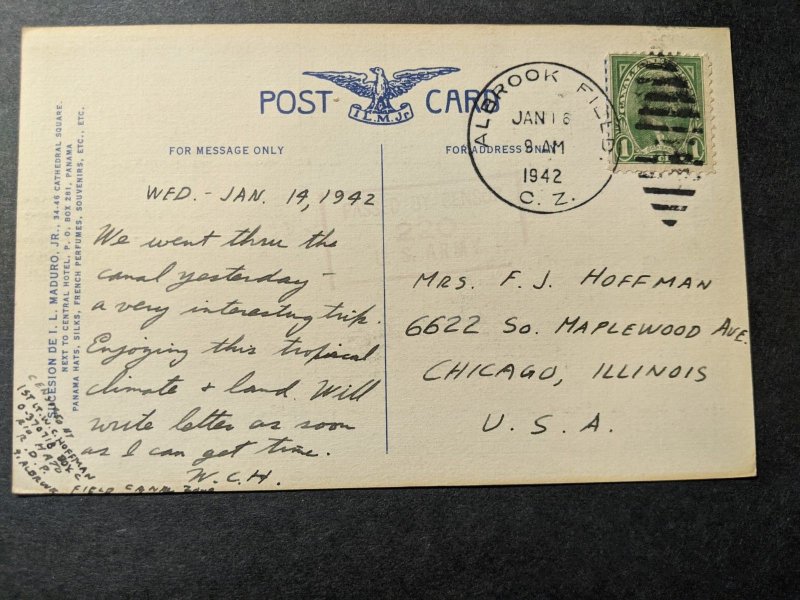 POST CARD
I.L.M.Jr.
FOR MESSAGE ONLY
FOR ADDRESS ONLY
ALBROOK FIELD
JAN 16
9 AM
1942
C. Z.
1 1
SUCESION DE I. L. MADURO, JR., 34-46 CATHEDRAL SQUARE.
NEXT TO CENTRAL HOTEL, P. O. BOX 281, PANAMA
PANAMA HATS, SILKS, FRENCH PERFUMES, SOUVENIRS, ETC., ETC.
WED. - JAN. 14, 1942
We went thru the
canal yesterday -
a very interesting trip.
Enjoying this tropical
climate + land. Will
write letter as soon
as I can get time.
W.C.H.
MRS. F. J. HOFFMAN
6622 SO. MAPLEWOOD AVE.
CHICAGO, ILLINOIS
U. S. A.
1ST LT. W. C. HOFFMAN
BOX C
RIO HATO
R. D. P.
FIELD CANAL ZONE